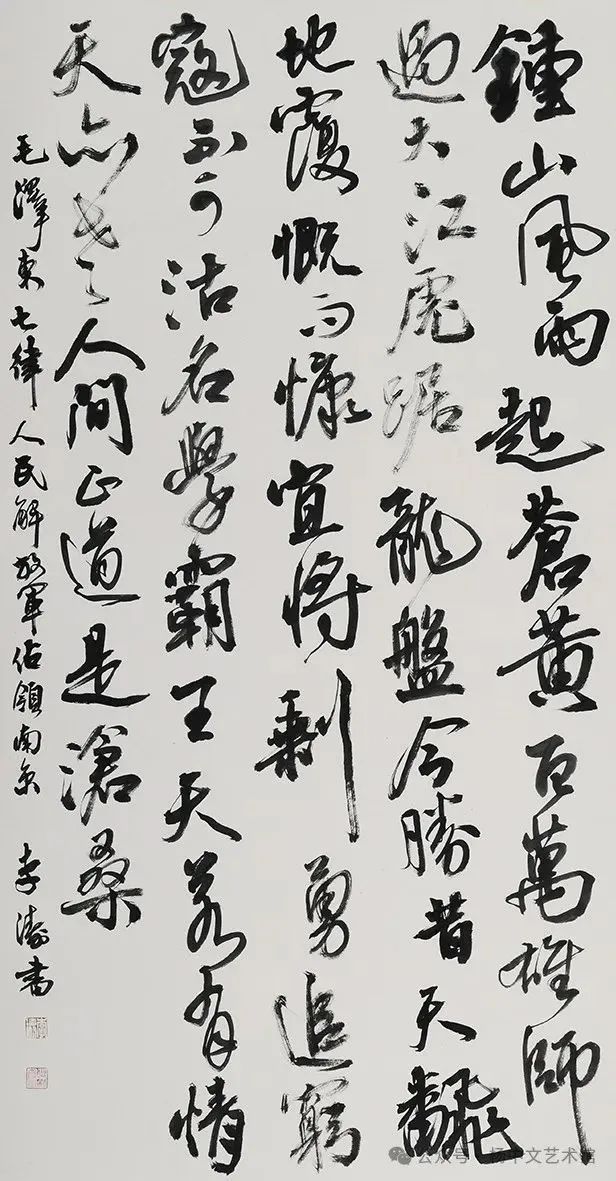 鍾山風雨起蒼黄百萬雄師
過大江虎踞龍盤今勝昔天飜
地覆慨而慷宜將剩勇追窮
寇不可沽名學霸王天若有情
天亦老人間正道是滄桑
毛澤東七律人民解放軍佔領南京 李濤書
公众号·杨中文艺术馆